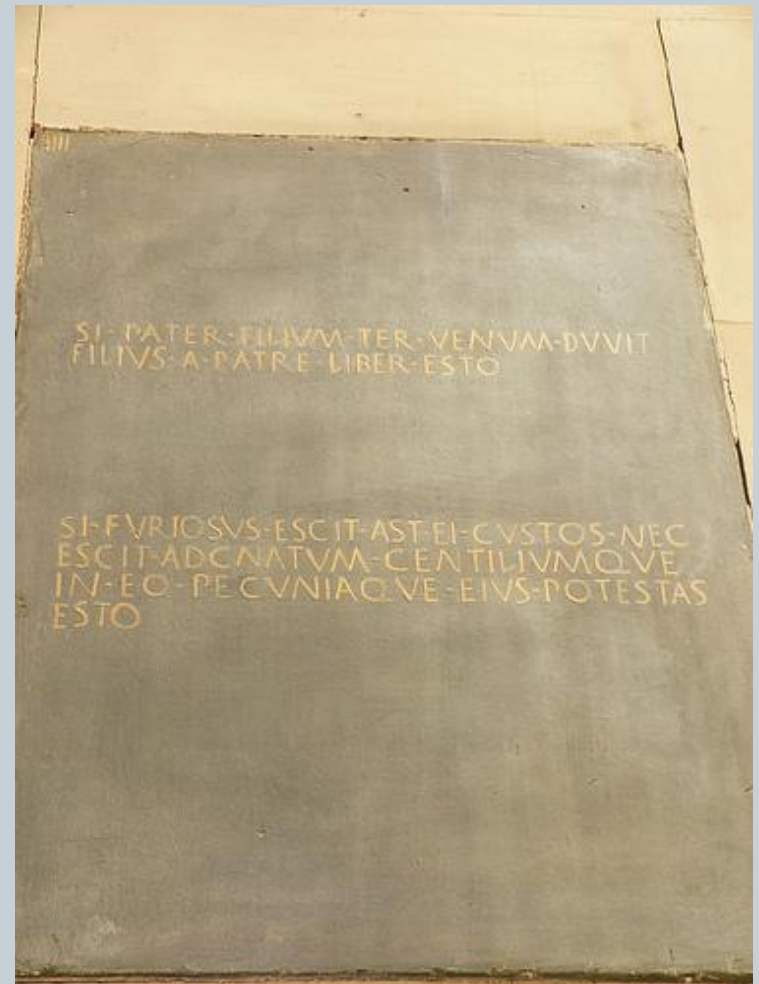 IIII
SI·PATER·FILIVM·TER·VENVM·DVVIT
FILIVS·A·PATRE·LIBER·ESTO
SI·FVRIOSVS·ESCIT·AST·EI·CVSTOS·NEC
ESCIT·ADGNATVM·GENTILIVMQVE
IN·EO·PECVNIAQVE·EIVS·POTESTAS
ESTO